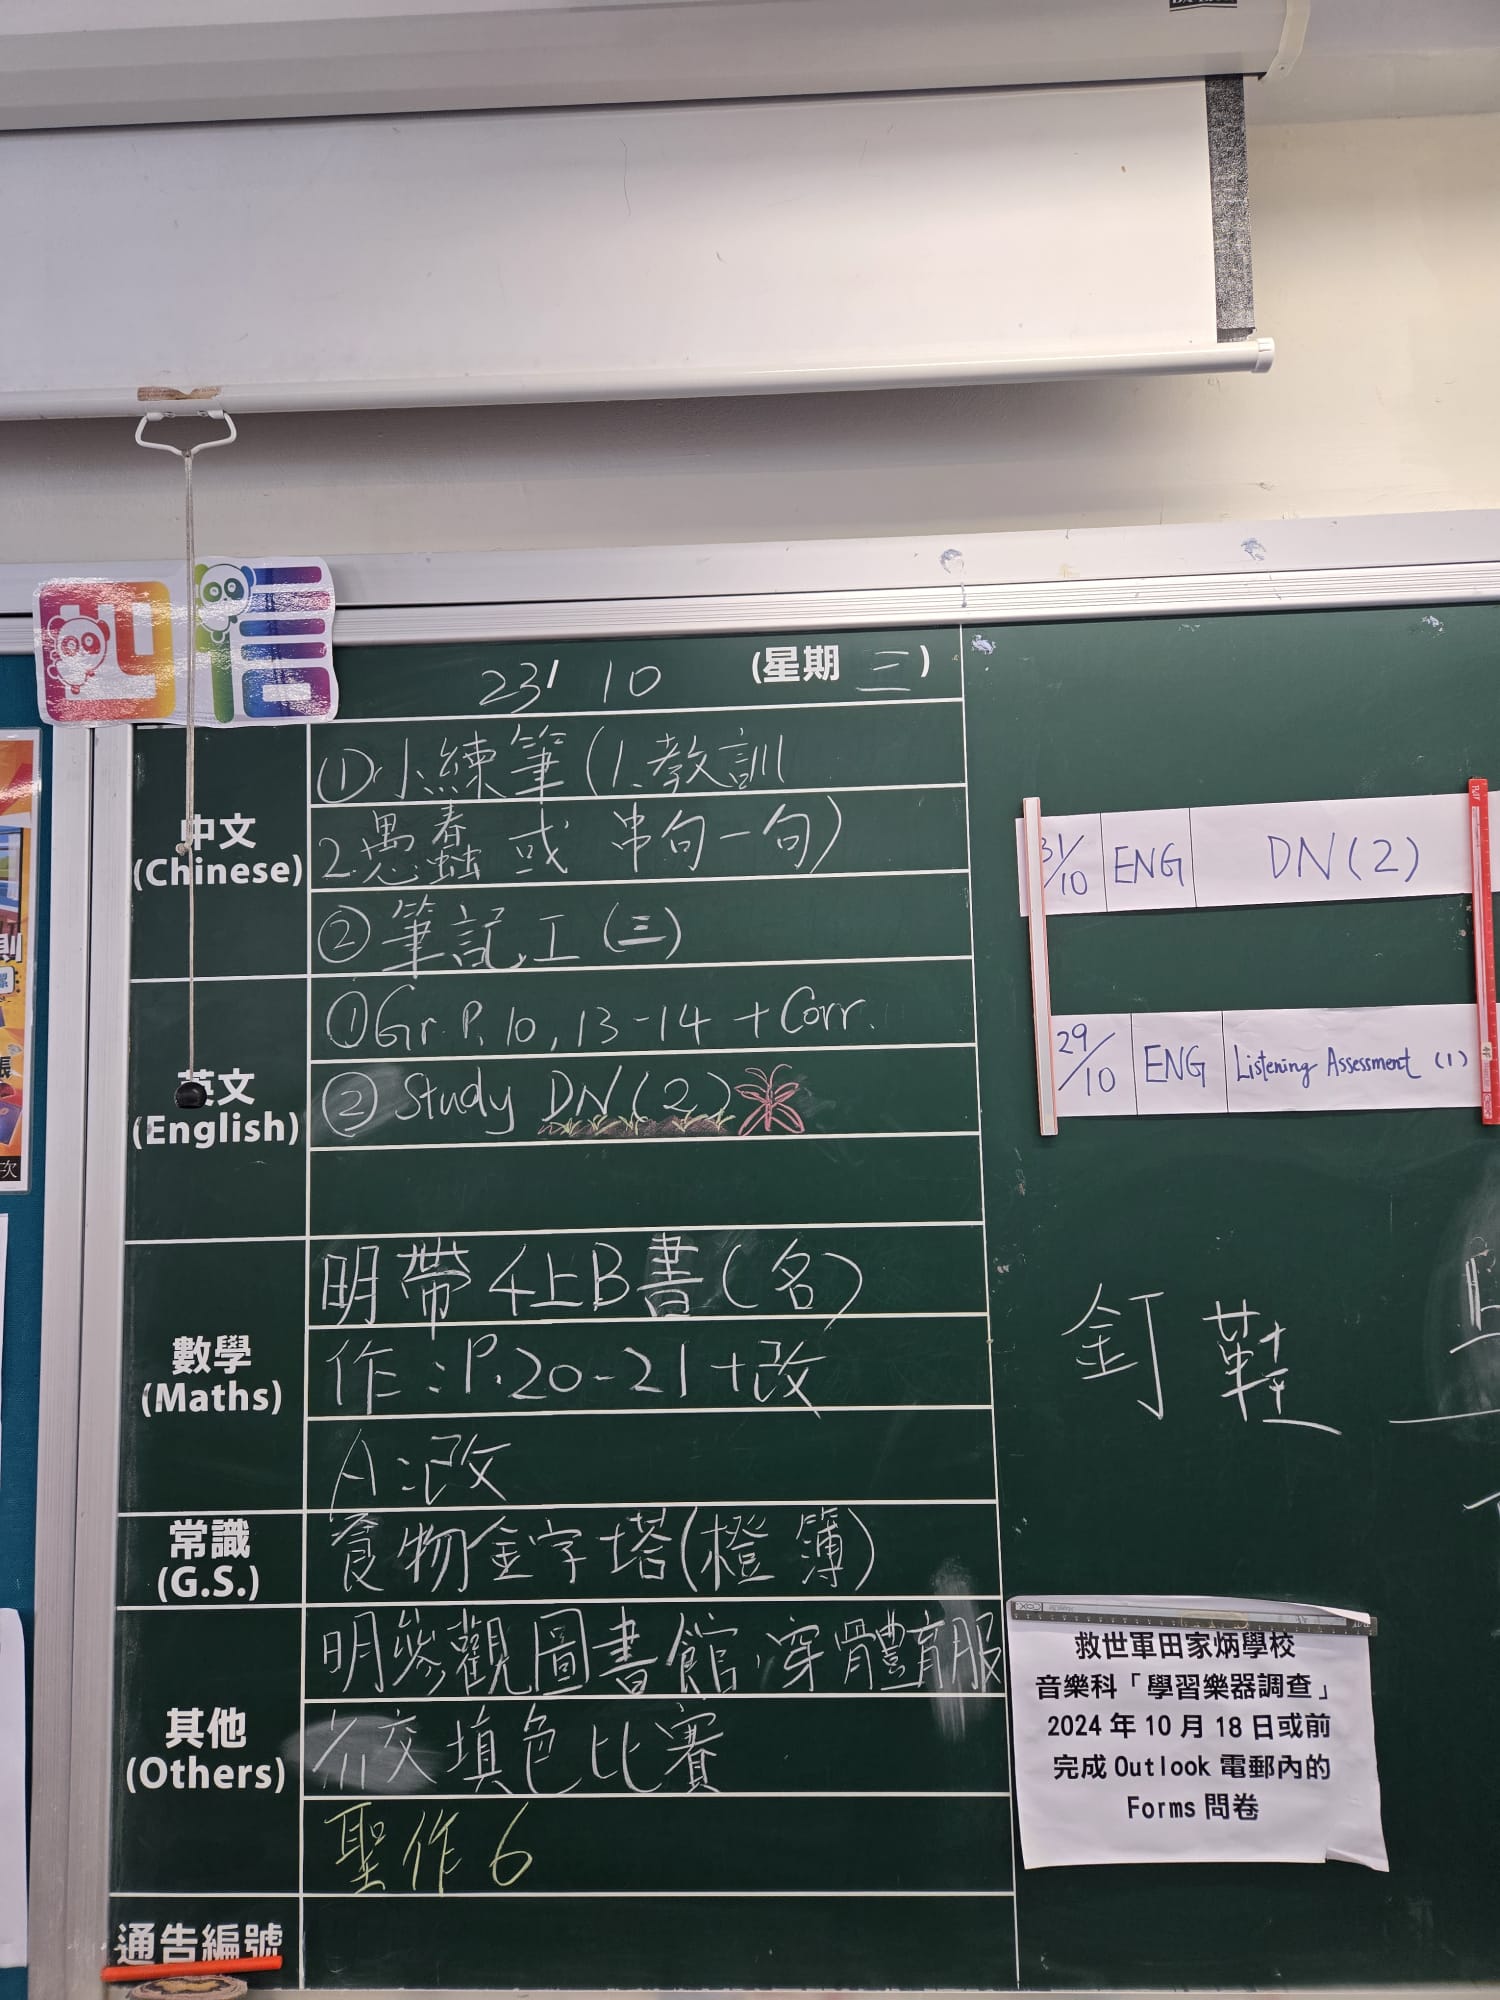 四信
23/ 10 (星期 三)
中文
(Chinese)
①小練筆(1.教訓
2.愚蠢 或 串句一句)
②筆記.工(三)
英文
(English)
①Gr.P.10, 13-14 + Corr.
②Study DN(2)
數學
(Maths)
明帶4上B書(名)
作:P.20-21+改
A:改
常識
(G.S.)
食物金字塔(橙簿)
其他
(Others)
明參觀圖書館,穿體育服
交填色比賽
聖作6
通告編號
31/10 ENG DN(2)
29/10 ENG Listening Assessment (1)
釘鞋
救世軍田家炳學校
音樂科「學習樂器調查」
2024年10月18日或前
完成Outlook電郵內的
Forms問卷